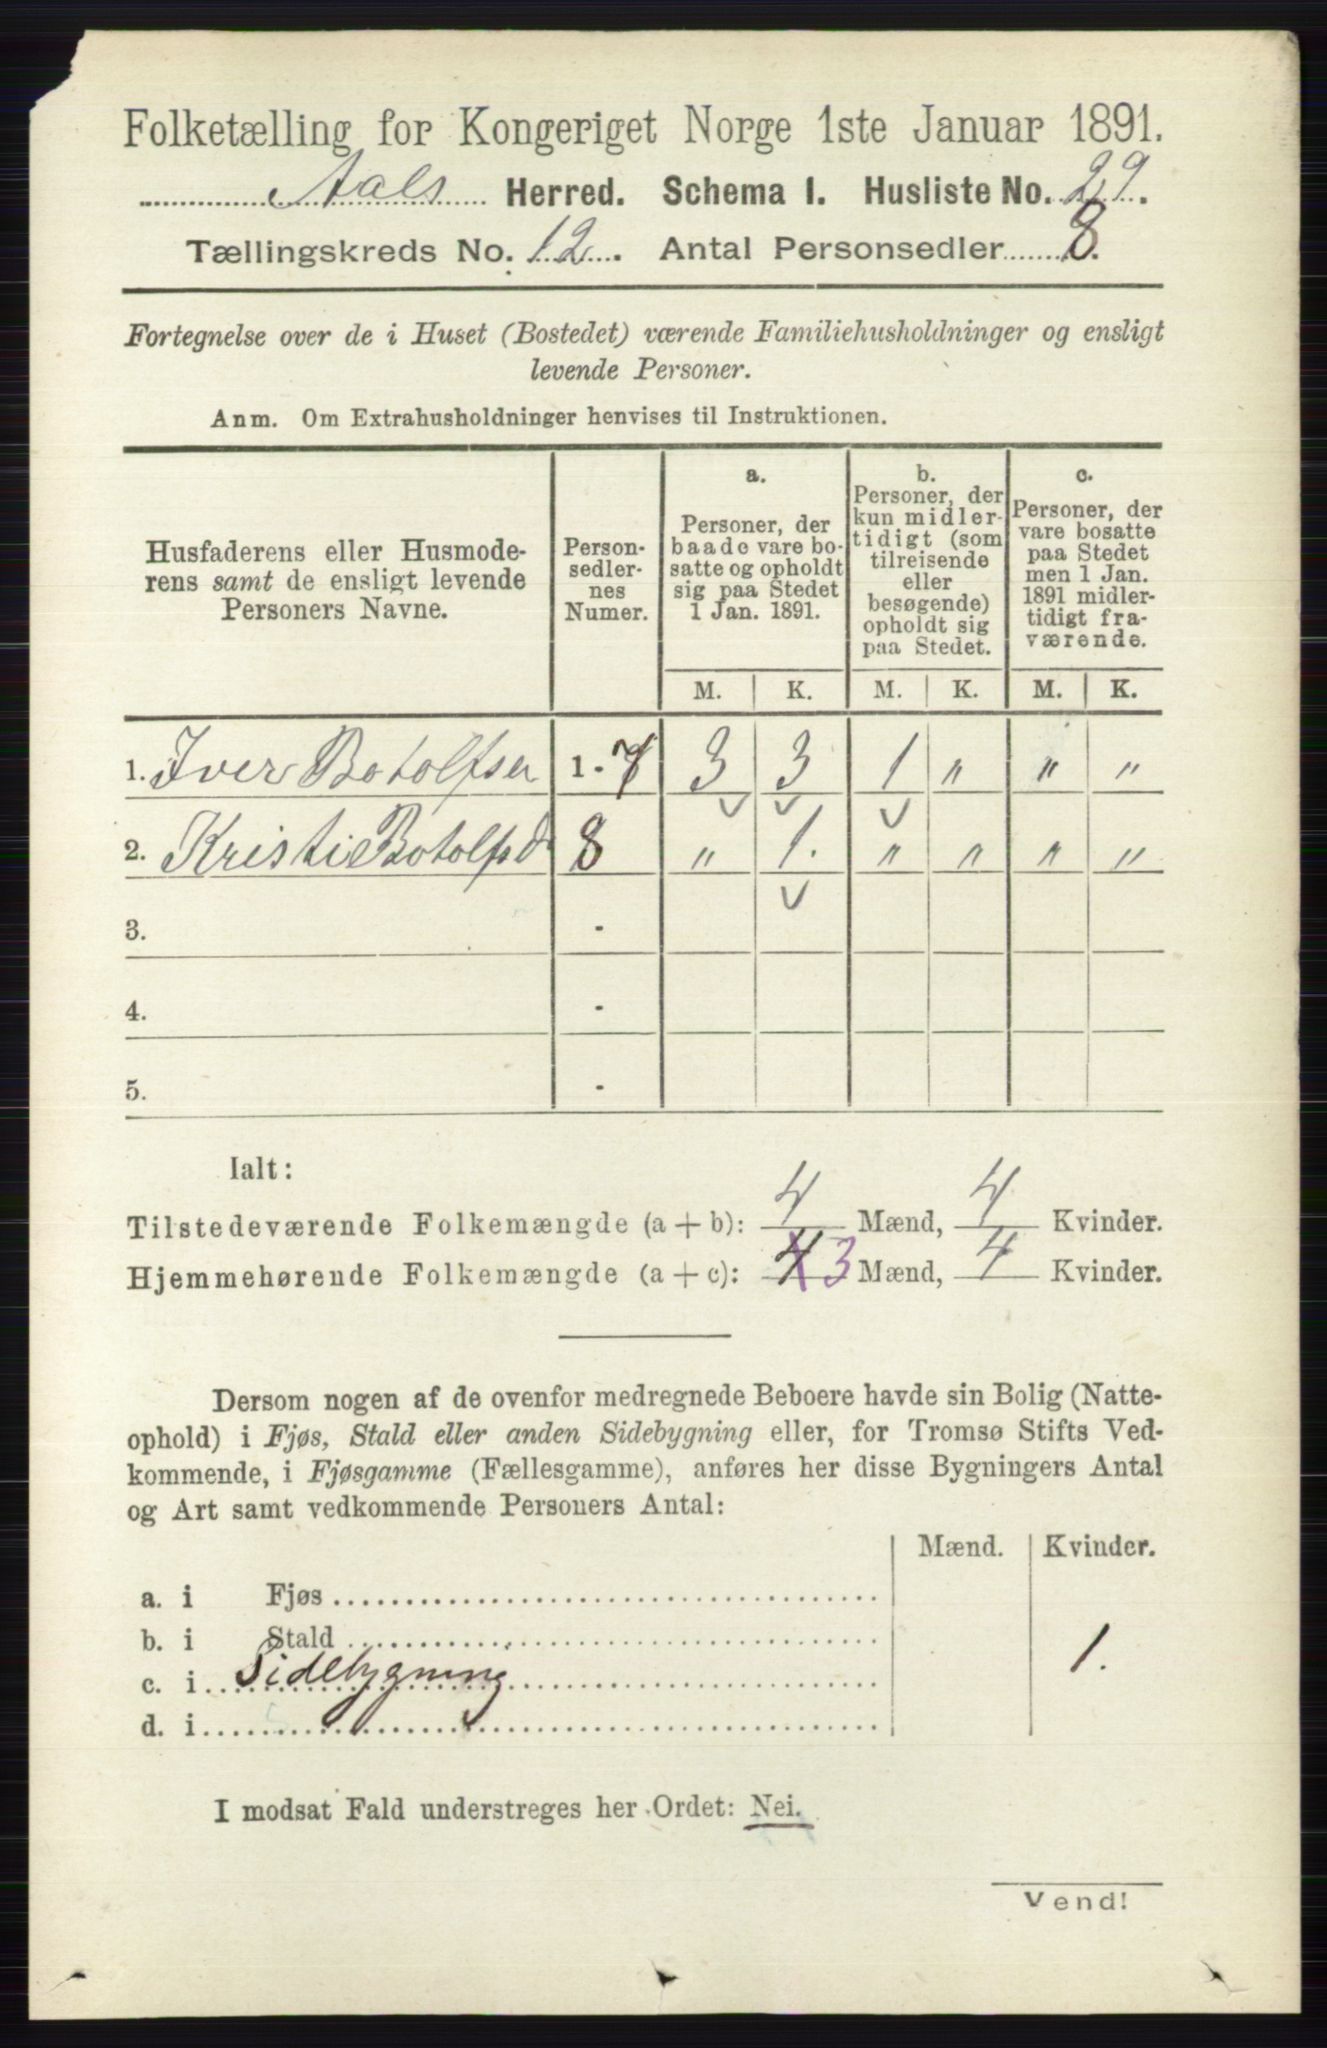 Folketælling for Kongeriget Norge 1ste Januar 1891.
Aals Herred. Schema I. Husliste No. 29.
Tællingskreds No. 12. Antal Personsedler 8.
Fortegnelse over de i Huset (Bostedet) værende Familiehusholdninger og ensligt
levende Personer.
Anm. Om Extrahusholdninger henvises til Instruktionen.
Husfaderens eller Husmode-
rens samt de ensligt levende
Personers Navne.
Person-
sedler-
nes
Numer.
a.
Personer, der
baade vare bo-
satte og opholdt
sig paa Stedet
1 Jan. 1891.
b.
Personer, der
kun midler-
tidigt (som
tilreisende
eller
besøgende)
opholdt sig
paa Stedet.
c.
Personer, der
vare bosatte
paa Stedet
men 1 Jan.
1891 midler-
tidigt fra-
værende.
M. K. M. K. M. K.
1. Iver Botolfsen 1-7 3 3 1 " " "
2. Kristi Botolfsd 8 " 1. " " " "
3. -
4. -
5. -
Ialt:
Tilstedeværende Folkemængde (a + b): 4 Mænd, 4 Kvinder.
Hjemmehørende Folkemængde (a + c): 4 3 Mænd, 4 Kvinder.
Dersom nogen af de ovenfor medregnede Beboere havde sin Bolig (Natte-
ophold) i Fjøs, Stald eller anden Sidebygning eller, for Tromsø Stifts Ved-
kommende, i Fjøsgamme (Fællesgamme), anføres her disse Bygningers Antal
og Art samt vedkommende Personers Antal:
Mænd. Kvinder.
a. i Fjøs
b. i Stald 1.
c. i Sidebygning
d. i
I modsat Fald understreges her Ordet: Nei.
Vend!